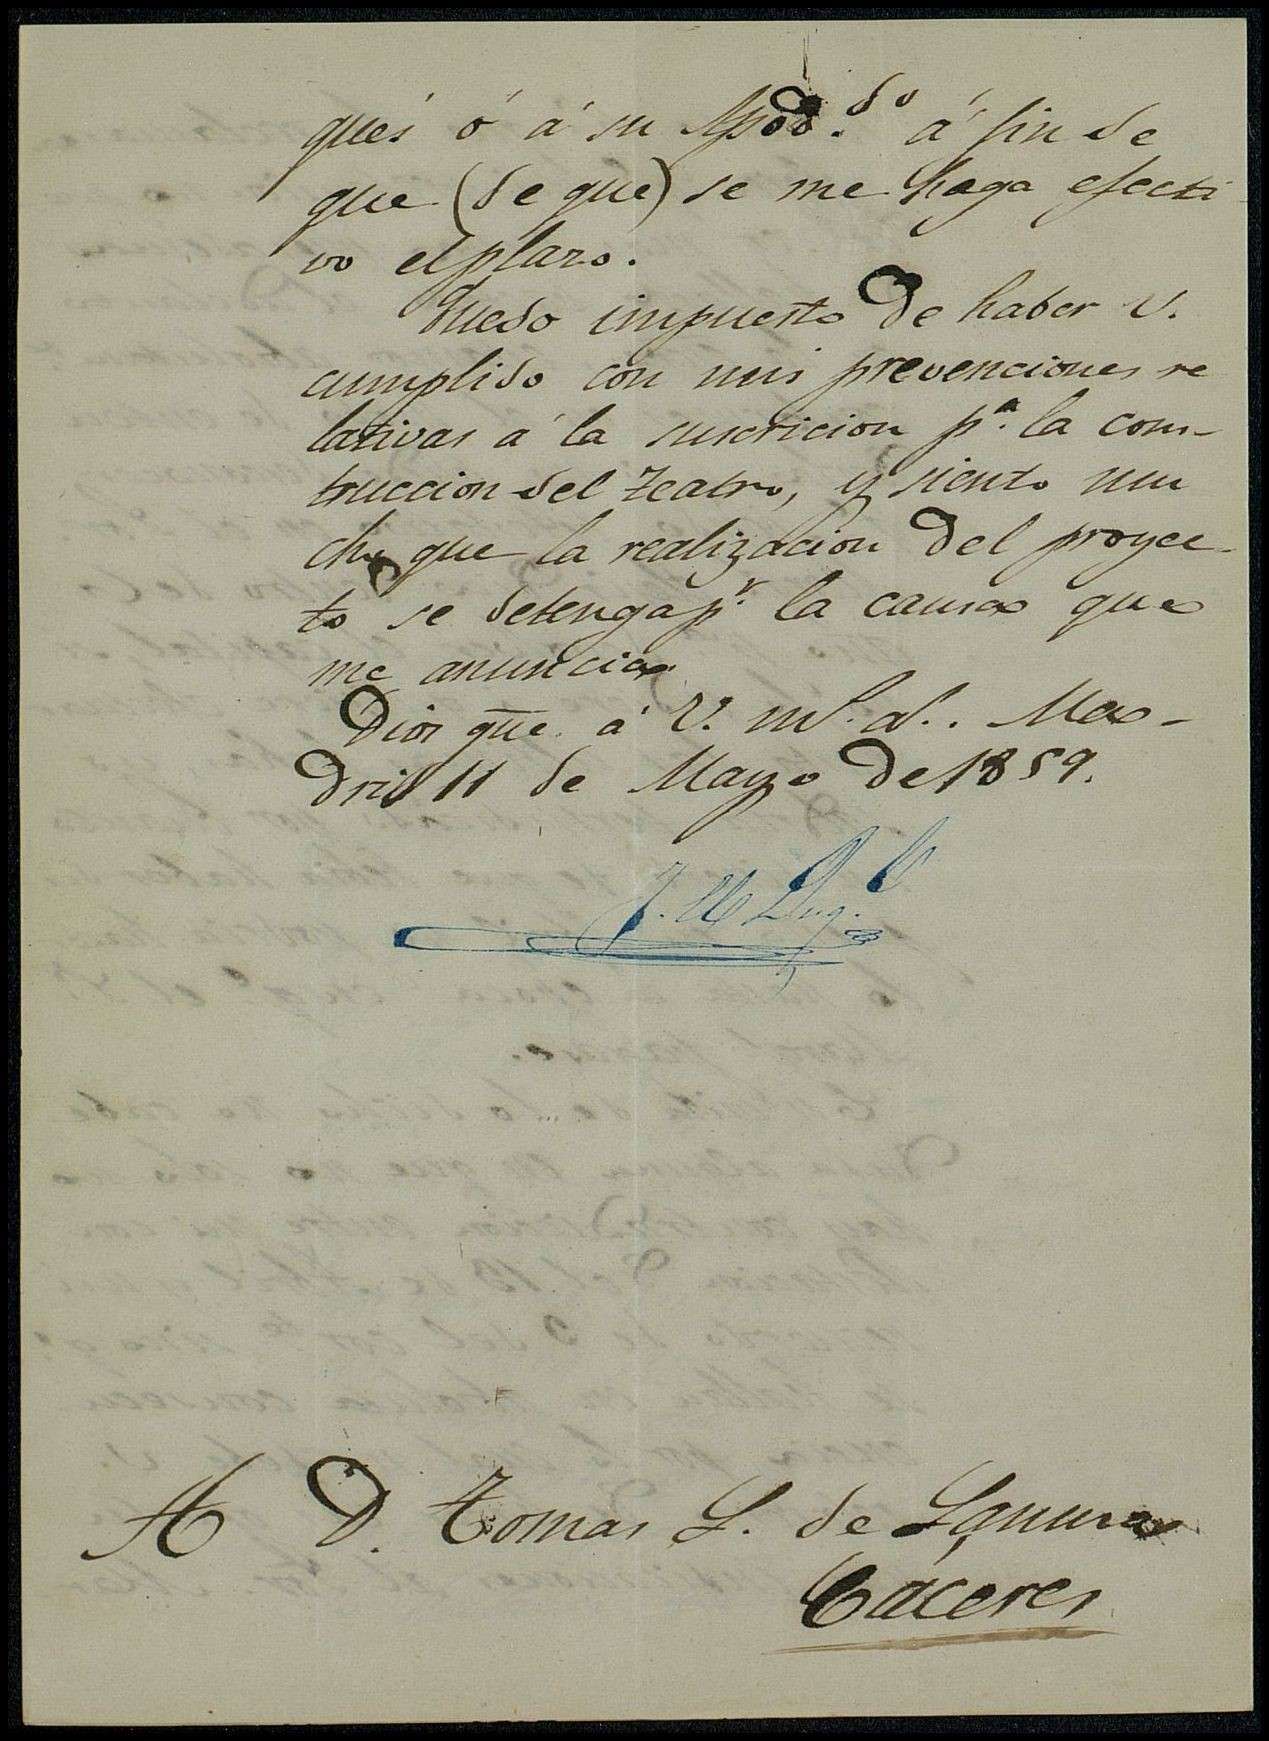 qués ó á su Apod.do á fin de
que (de que) se me haga efecti-
vo el plazo.
Quedo impuesto de haber V.
cumplido con mis prevenciones re
lativas á la suscricion p.a la cons-
truccion del teatro, y siento mu
cho que la realizacion del proyec-
to se detenga p.r la causa que
me anuncia.
Dios gue. á V. m.s a.s. Ma-
drid 11 de Mayo de 1859.
A D. Tomas L. de
Cáceres